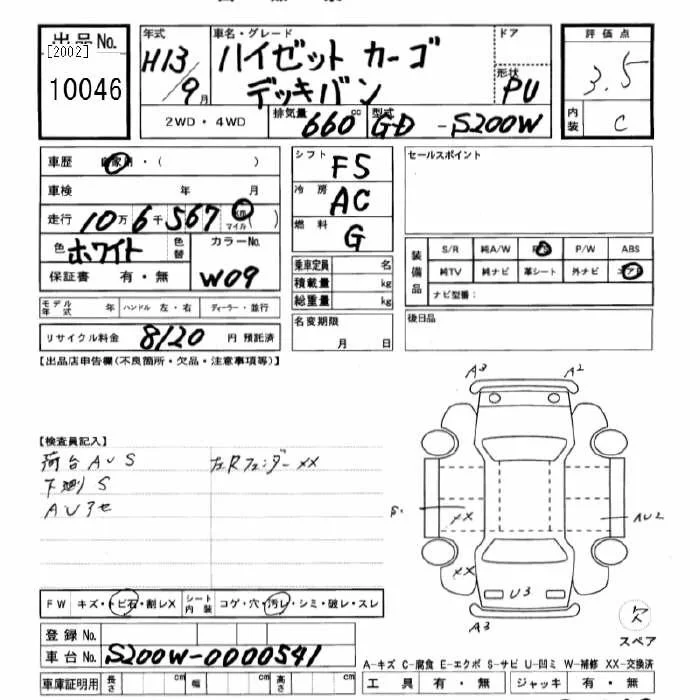 出品No.
[2002]
10046
年式
H13/9月
車名・グレード
ハイゼット カーゴ
デッキバン
ドア
形状
PU
2WD・4WD
排気量
660cc
型式
GD-S200W
評価点
3.5
内装
C
車歴 自家用・( )
車検 年 月
走行 10万6千567 マイル )
色 ホワイト 色替
カラーNo.
W09
保証書 有・無
モデル年式 年 ハンドル 左・右 ディーラー・並行
リサイクル料金 8120 円 預託済
シフト F5
冷房 AC
燃料 G
乗車定員 名
積載量 kg
総重量 kg
名変期限
月 日
セールスポイント
装備品
S/R 純A/W P/S P/W ABS
純TV 純ナビ 革シート 外ナビ エアB
ナビ型番:
後日品
【出品店申告欄(不良箇所・欠品・注意事項等)】
【検査員記入】
荷台AUS 左Rフェンダー××
下廻りS
AUアセ
A3 A2
S.
XX
AU2
XX
U3
A3
欠
スペア
FW キズ・トビ石・割レX シート内装 コゲ・穴・汚レ・シミ・破レ・スレ
登録No.
車台No. S200W-0000541
車庫証明用 長さ cm 幅 cm 高さ cm
A-キズ C-腐食 E-エクボ S-サビ U-凹ミ W-補修 XX-交換済
工具 有・無 ジャッキ 有・無